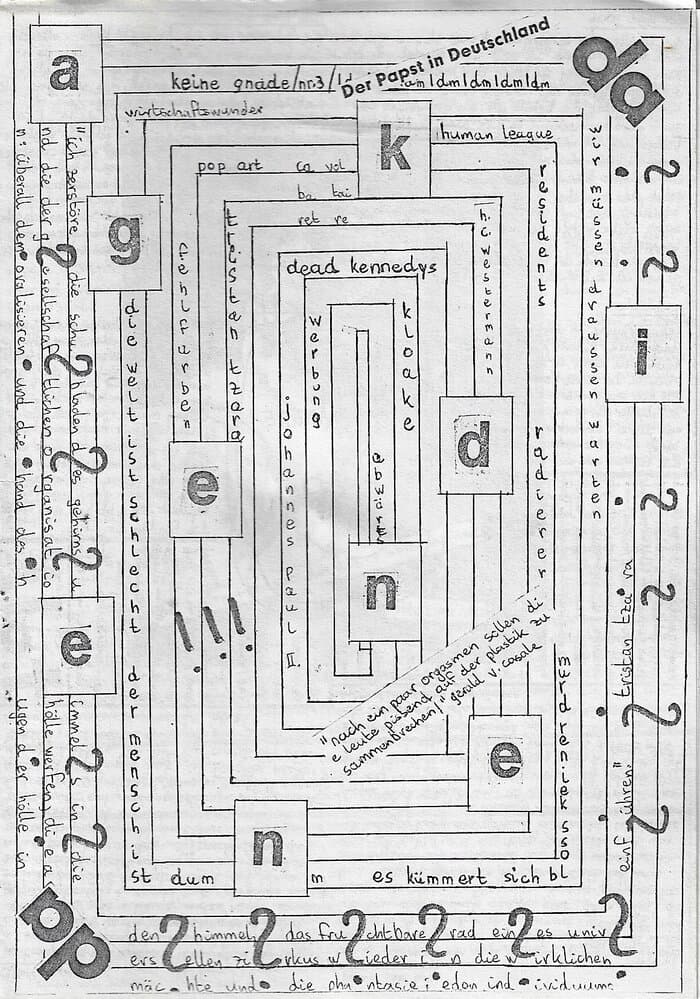 a
keine gnade/nr.3/1d
Der Papst in Deutschland
dm1dm1dm1dm1dm
da
wirtschaftswunder
k
human league
pop art
ca vol
ba tai
ret re
g
residents
h.c. westermann
wir müssen draussen warten
i
tristan tzara
fehlfarben
dead kennedys
werbung
kloake
abwärts
johannes paul II.
e
d
n
radierer
!!!
"nach ein paar orgasmen sollen di
e leute pissend auf der plastik zu
sammenbrechen!" gerald v. casale
e
n
die welt ist schlecht der mensch i
st dum m es kümmert sich bl
oss keiner drum
"ich zerstöre die schubladen des gehirns u
nd die der gesellschaftlichen organisatio
n: überall demoralisieren und die hand des h
e
immels in die
hölle werfen, die a
ugen der hölle in
pp
den himmel, das fruchtbare rad eines univ
ersellen zirkus wieder in die wirklichen
mächte und die phantasie jedon individuums
einführen." tristan tzara